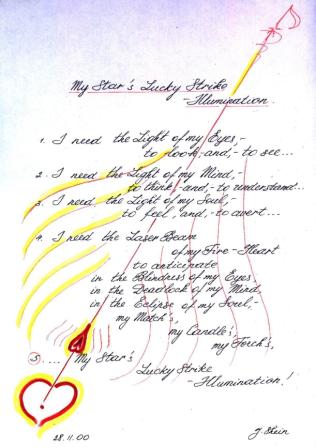 My Star's Lucky Strike
-Illumination.
1. I need the Light of my Eyes,-
to look-and,- to see...
2. I need the Light of my Mind,-
to think-and,- to understand...
3. I need the Light of my Soul,-
to feel, and,- to avert...
4. I need the Laser Beam
of my Fire-Heart
to anticipate
in the Blindness of my Eyes
in the Deadlock of my Mind
in the Eclipse of my Soul,-
my Match's,
my Candle's,
my Torch's,
5.... My Star's
Lucky Strike
-Illumination!
28.11.00